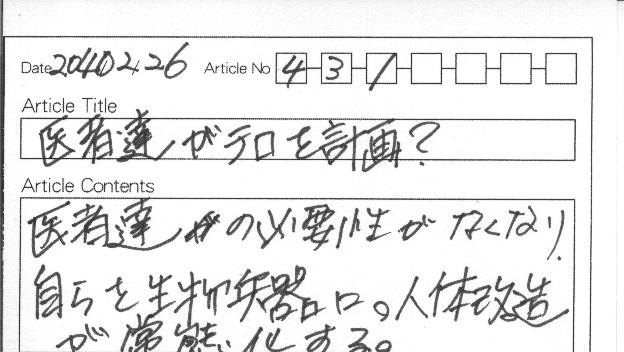 Date 20402.26 Article No 4 3 1
Article Title
医者達がテロを計画?
Article Contents
医者達の必要性がなくなり、
自らを生物兵器口。人体改造
が常態化する。